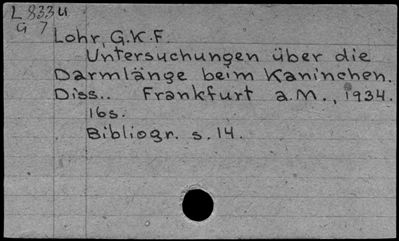 L 833u
G 7
Lohr, G.K.F.
Untersuchungen über die
Darmlänge beim Kaninchen.
Diss.. Frankfurt a.M., 1934.
16s.
Bibliogr. s.14.